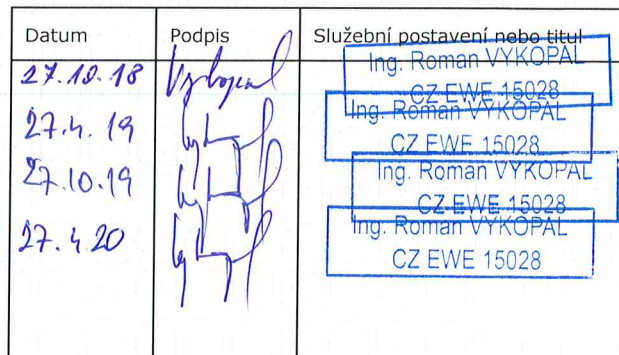 Datum Podpis Služební postavení nebo titul
27.10.18 Vykopal Ing. Roman VYKOPAL
CZ EWE 15028
27.4.19 Ing. Roman VYKOPAL
CZ EWE 15028
27.10.19 Ing. Roman VYKOPAL
CZ EWE 15028
27.4.20 Ing. Roman VYKOPAL
CZ EWE 15028